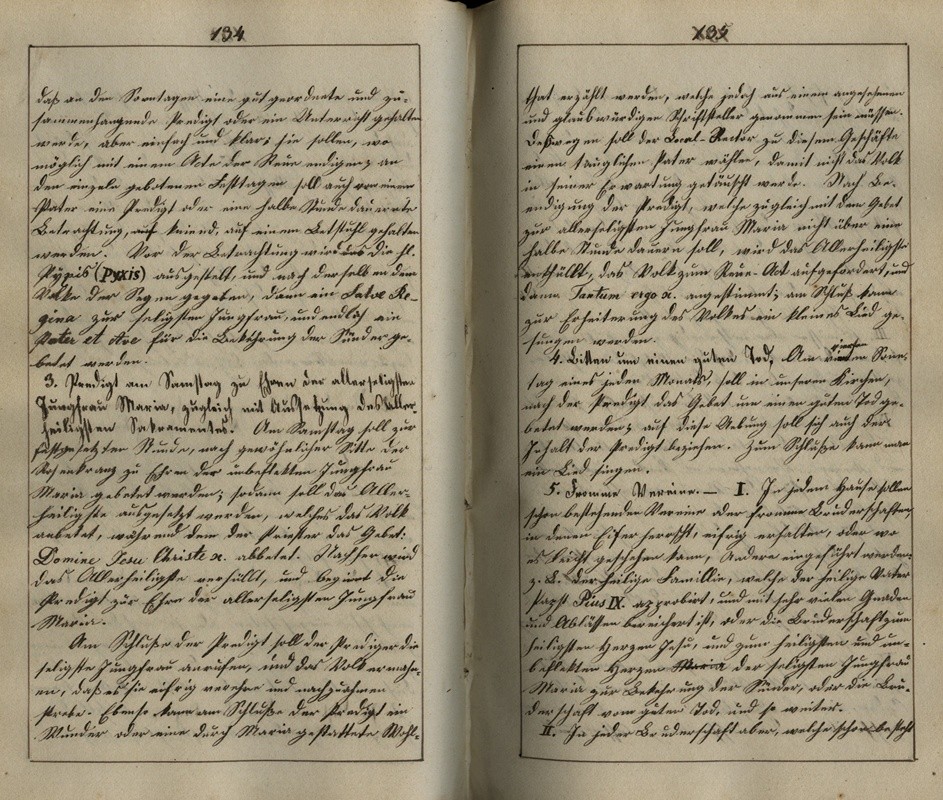 134
daß an den Sonntagen eine gut geordnete und zu-
sammenhangende Predigt oder ein Unterricht gehalten
werde, aber einfach und klar; sie sollen, wo
möglich mit einem Acte der Reue endigen; an
den einzeln gebotenen Festtagen soll auch von einem
Pater eine Predigt oder eine halbe Stunde dauernde
Betrachtung, auf kniend, auf einem Betstuhl gehalten
werden. Vor der Betrachtung wird das die hl.
Pyxis (Pyxis) ausgestelt, und nach derselben dem
Volke der Segen gegeben, dann ein Salve Re-
gina zur seligsten Jungfrau, und endlich ein
Pater et Ave für die Bekehrung der Sünder ge-
betet werden.
3. Predigt am Samstag zu Ehren der allerseligsten
Jungfrau Maria, zugleich mit Aussetzung des Aller-
heiligsten Sakramentes. Am Samstag soll zur
festgesetzten Stunde, nach gewöhnlicher Sitte der
Rosenkranz zu Ehren der unbeflekten Jungfrau
Maria gebetet werden; sodann soll das Aller-
heiligste ausgesetzt werden, welches das Volk
anbetet, während dem der Priester das Gebet:
Domine Jesu Christe x. abbetet. Nachher wird
das Allerheiligste verhüllt, und beginnt die
Predigt zur Ehre der allerseligsten Jungfrau
Maria.
Am Schluße der Predigt soll der Prediger die
seligste Jungfrau anrufen, und das Volk ermahn-
en, daß es sie eifrig verehre und nachzuahmen
strebe. Ebenso kann am Schluße der Predigt ein
Wunder oder eine durch Maria gestattete Wohl-
135
that erzählt werden, welche jedoch aus einem angesehenen
und glaubwürdigen Schriftsteller genommen sein müssen.
Deßwegen soll der Local-Rector zu diesem Geschäfte
einen tauglichen Pater wählen, damit nicht das Volk
in seiner Erwartung getäuscht werde. Nach Be-
endigung der Predigt, welche zugleich mit dem Gebet
zur allerseligsten Jungfrau Maria nicht über eine
halbe Stunde dauern soll, wird das Allerheiligste
enthüllt, das Volk zum Reue-Akt aufgefordert, und
dann Tantum ergo x. angestimmt; am Schluß kann
zur Erheiterung des Volkes ein kleines Lied ge-
sungen werden.
4. Bitten um einen guten Tod. Am vierten Sonn-
tag eines jeden Monats, soll in unseren Kirchen,
nach der Predigt das Gebet um einen guten Tod ge-
betet werden; auf diese Uebung soll sich auch der
Inhalt der Predigt beziehen. Zum Schluße kann man
ein Lied singen.
5. Fromme Vereine. — I. In jedem Hause sollen
schon bestehenden Vereine oder fromme Bruderschaften,
in denen Eifer herrscht, eifrig erhalten, oder wo
es leicht geschehen kann, Andere eingeführt werden;
z. B. der heilige Famillie, welche der heilige Vater
Papst Pius IX. approbirt, und mit sehr vielen Gnaden
und Ablüssen bereichert ist; oder die Bruderschaft zum
heiligsten Herzen Jesu, und zum heiligsten und un-
beflekten Herzen Maria der seligsten Jungfrau
Maria zur Bekehrung der Sünder, oder die Bru-
derschaft vom guten Tod, und so weiter.
II. In jeder Bruderschaft aber, welche schon besteht